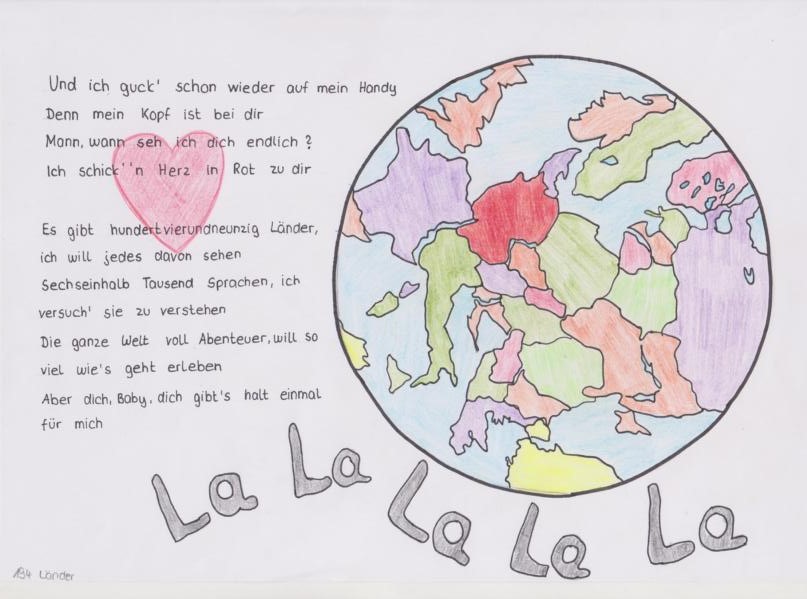 Und ich guck' schon wieder auf mein Handy
Denn mein Kopf ist bei dir
Mann, wann seh ich dich endlich?
Ich schick''n Herz in Rot zu dir
Es gibt hundertvierundneunzig Länder,
ich will jedes davon sehen
Sechseinhalb Tausend Sprachen, ich
versuch' sie zu verstehen
Die ganze Welt voll Abenteuer, will so
viel wie's geht erleben
Aber dich, Baby, dich gibt's halt einmal
für mich
La La La La La
194 Länder